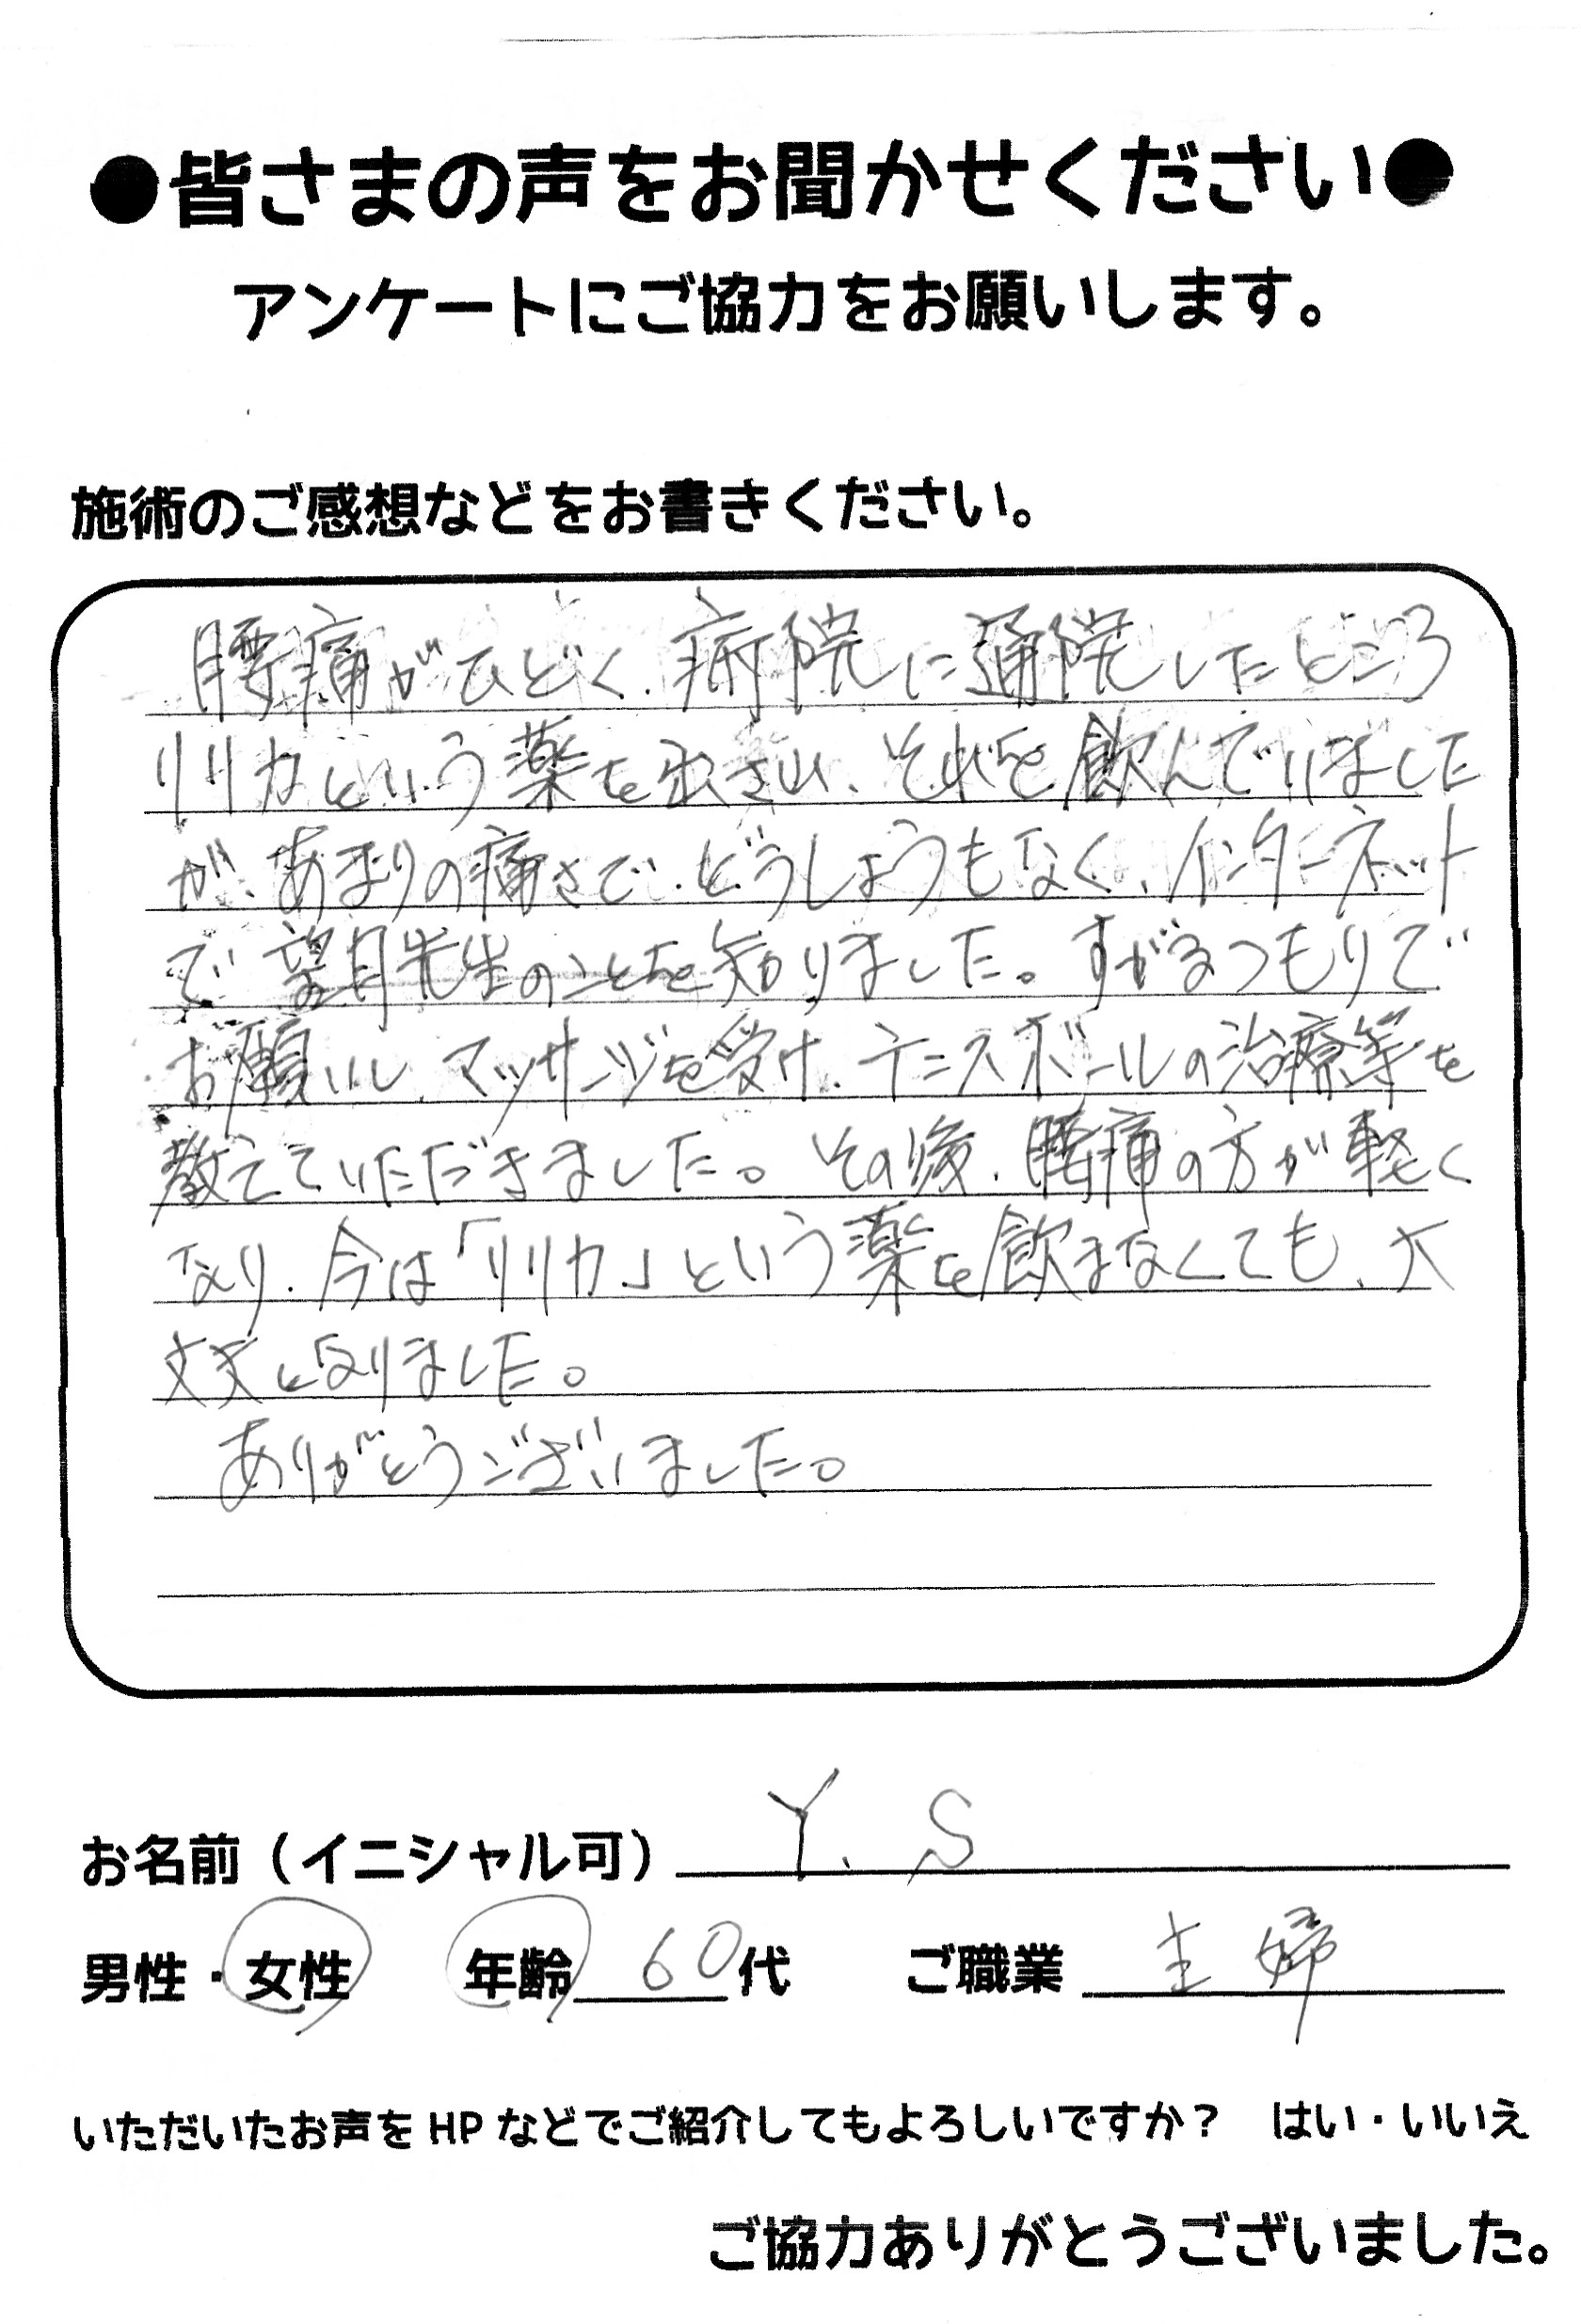 ●皆さまの声をお聞かせください●
アンケートにご協力をお願いします。
施術のご感想などをお書きください。
腰痛がひどく、病院に通院したところ
リリカという薬を出され、それを飲んでいました
が、あまりの痛さで、どうしようもなく、インターネット
で望月先生のことを知りました。すがるつもりで
お願いし、マッサージを受け、テニスボールの治療等を
教えていただきました。その後、腰痛の方が軽く
なり、今は「リリカ」という薬を飲まなくても、大
丈夫になりました。
ありがとうございました。
お名前（イニシャル可） Y. S
男性・女性 年齢 60代 ご職業 主婦
いただいたお声をHPなどでご紹介してもよろしいですか？ はい・いいえ
ご協力ありがとうございました。